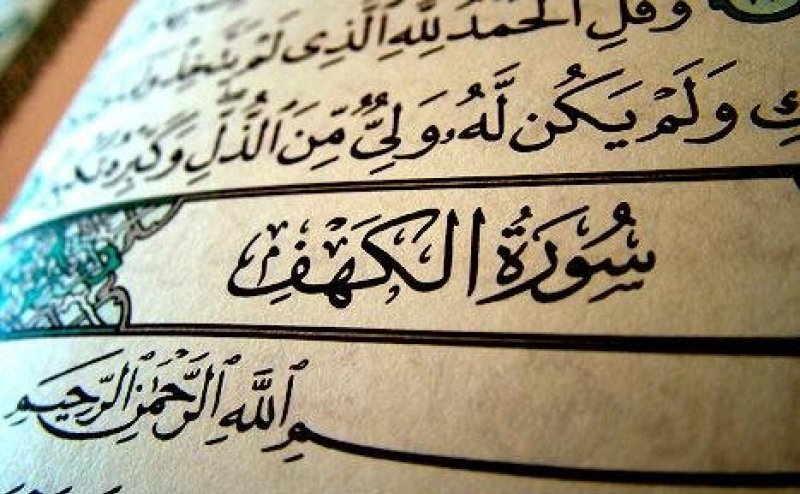 وَقُلِ ٱلْحَمْدُ لِلَّهِ ٱلَّذِى لَمْ يَتَّخِذْ
وَلَمْ يَكُن لَّهُۥ وَلِىٌّ مِّنَ ٱلذُّلِّ وَكَبِّرْهُ
سُورَةُ الكَهْفِ
بِسْمِ ٱللَّهِ ٱلرَّحْمَٰنِ ٱلرَّحِيمِ